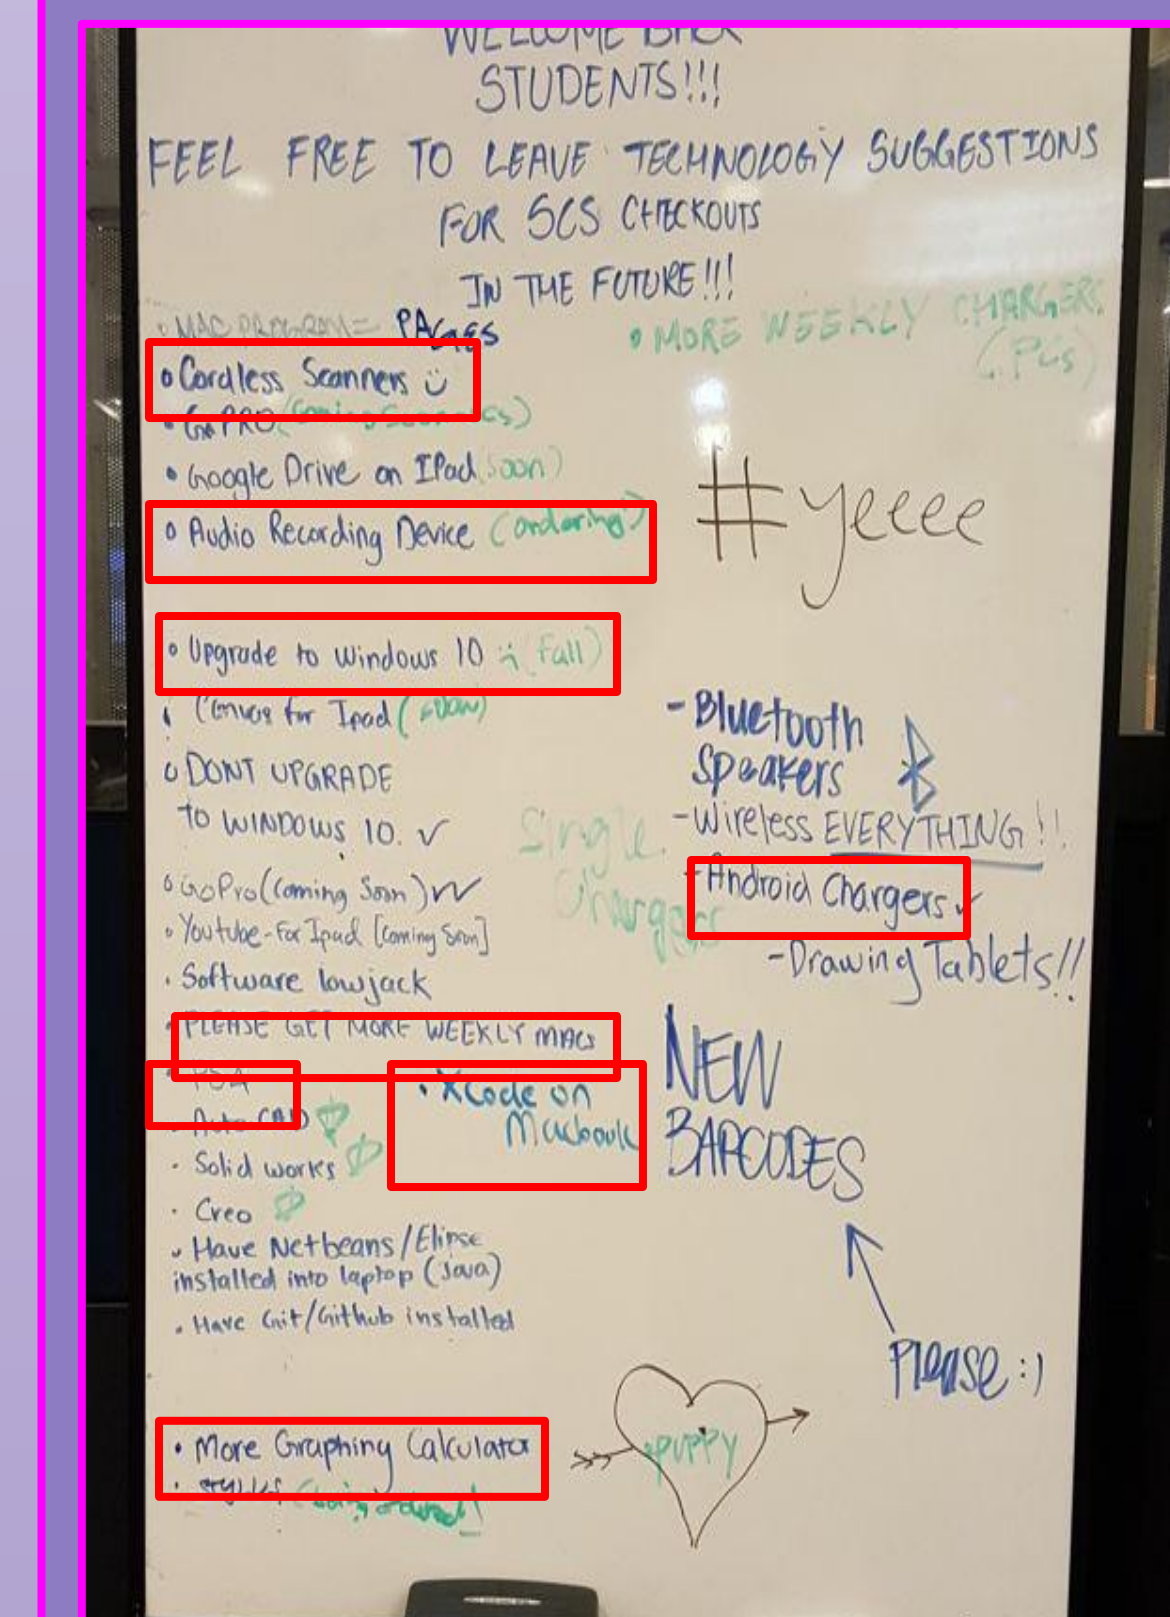 WELCOME BACK
STUDENTS!!!
FEEL FREE TO LEAVE TECHNOLOGY SUGGESTIONS
FOR SCS CHECKOUTS
IN THE FUTURE!!!
• MAC PROGRAM = PAGES
• Cordless Scanners
• GoPRO (Coming Soon)
• Google Drive on IPad (soon)
• Audio Recording Device (ordering)
• Upgrade to Windows 10 (Fall)
Canvas for Ipad (soon)
• DONT UPGRADE
TO WINDOWS 10. ✓
• GoPro (Coming Soon) ✓
• Youtube - For Ipad [Coming Soon]
• Software lowjack
• PLEASE GET MORE WEEKLY MACS
• Auto CAD
• Solid works
• Creo
• Have Netbeans/Elipse
installed into laptop (Java)
• Have Git/Github installed
• More Graphing Calculator
• stylus (being ordered!)
• XCode on
Macbook
• MORE WEEKLY CHARGERS
(PCs)
#yeeee
- Bluetooth
Speakers
- Wireless EVERYTHING!!
- Android Chargers ✓
- Drawing Tablets!!
Single
Chargers
NEW
BARCODES
Please :)
PUPPY